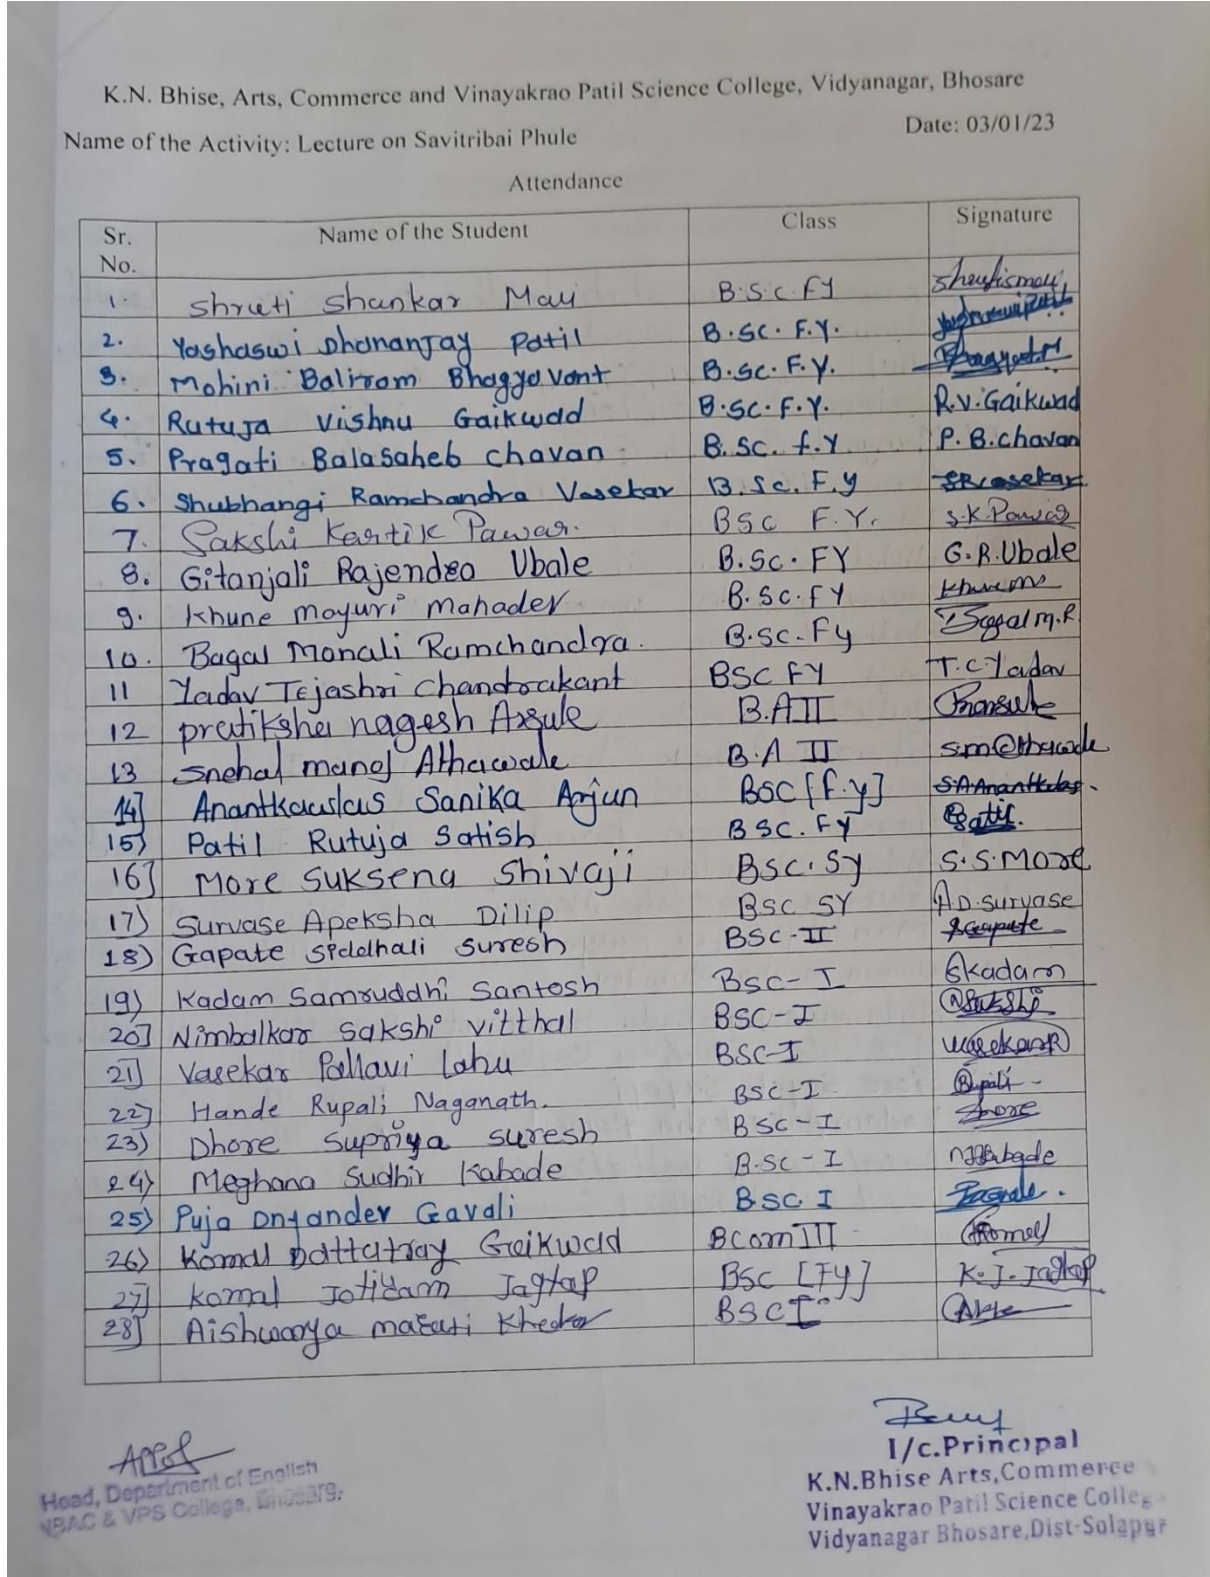 K.N. Bhise, Arts, Commerce and Vinayakrao Patil Science College, Vidyanagar, Bhosare
Name of the Activity: Lecture on Savitribai Phule Date: 03/01/23
Attendance
Sr. No. Name of the Student Class Signature
1. Shruti Shankar Mali B.S.C. FY
2. Yashaswi Dhananjay Patil B.SC. F.Y.
3. Mohini Baliram Bhagyavant B.Sc. F.Y.
4. Rutuja Vishnu Gaikwad B.SC. F.Y. R.V. Gaikwad
5. Pragati Balasaheb Chavan B.SC. F.Y P. B. Chavan
6. Shubhangi Ramchandra Vasekar B.Sc. F.Y
7. Sakshi Kartik Pawar. BSC F.Y. S.K. Pawar
8. Gitanjali Rajendra Ubale B.Sc. FY G.R. Ubale
9. Khune mayuri mahadev B.Sc. FY
10. Bagal Monali Ramchandra. B.Sc. Fy Bagal M.R.
11 Yadav Tejashri Chandrakant BSC FY T.C. Yadav
12 pratiksha nagesh Arsule B.A II
13 Snehal manoj Athawale B.A II
14] Anantkawlas Sanika Arjun BSC [F.Y]
15) Patil Rutuja Satish BSC. FY
16] More Suksena Shivaji BSC. SY S.S. More
17) Survase Apeksha Dilip BSC SY A.D. Survase
18) Gapate Siddhali Suresh BSC-II
19) Kadam Samruddhi Santosh BSC-I Skadam
20] Nimbalkar Sakshi Vitthal BSC-I
21] Vasekar Pallavi Lahu BSC-I
22] Hande Rupali Naganath. BSC-I Rupali
23) Dhore Supriya Suresh BSC-I
24) Meghana Sudhir Kabade B.SC-I
25) Puja Dnyandev Gavali BSC I
26) Komal Dattatray Gaikwad BCom III Komal
27] Komal Jotiram Jagtap BSC [FY] K.J. Jagtap
28] Aishwarya maruti Khedkar BSC I
I/c.Principal
Head, Department of English K.N.Bhise Arts,Commerce
&amp; VPS College, Bhosare. Vinayakrao Patil Science
Vidyanagar Bhosare,Dist-Solapur